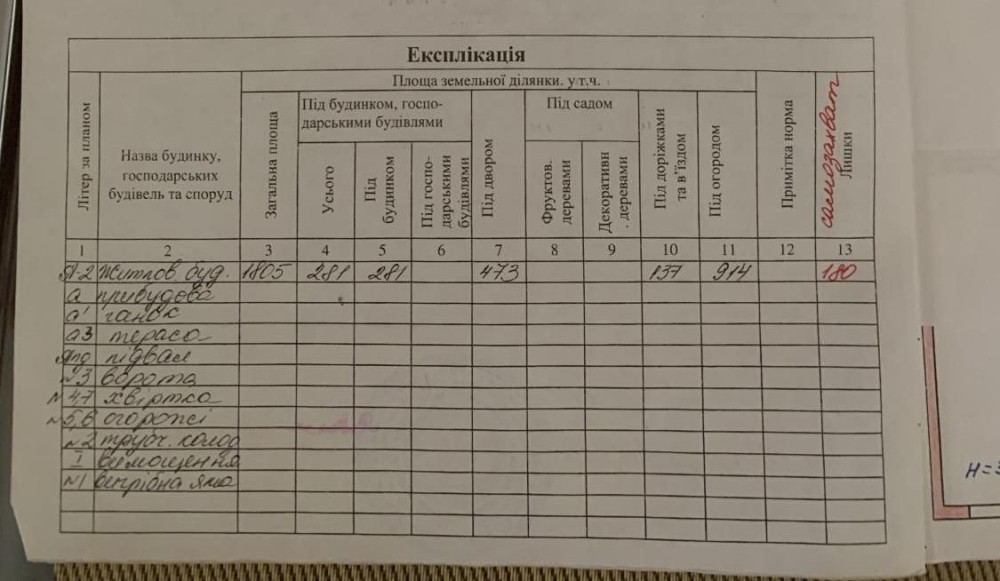 Експлікація
Літер за планом
Назва будинку, господарських будівель та споруд
Площа земельної ділянки, у т.ч.
Загальна площа
Під будинком, госпо-
дарськими будівлями
Усього
Під будинком
Під госпо-
дарськими
будівлями
Під двором
Під садом
Фруктов. деревами
Декоративн. деревами
Під доріжками та в'їздом
Під огородом
Примітка норма
самозахват
Лишки
1 2 3 4 5 6 7 8 9 10 11 12 13
А-2 житлов. буд. 1805 281 281 473 137 914 180
а прибудова
а' ганок
а3 тераса
Апд підвал
№3 ворота
№4,7 хвіртка
№5,6 огорожі
№2 трубч. колод
I вимощення
№1 вигрібна яма